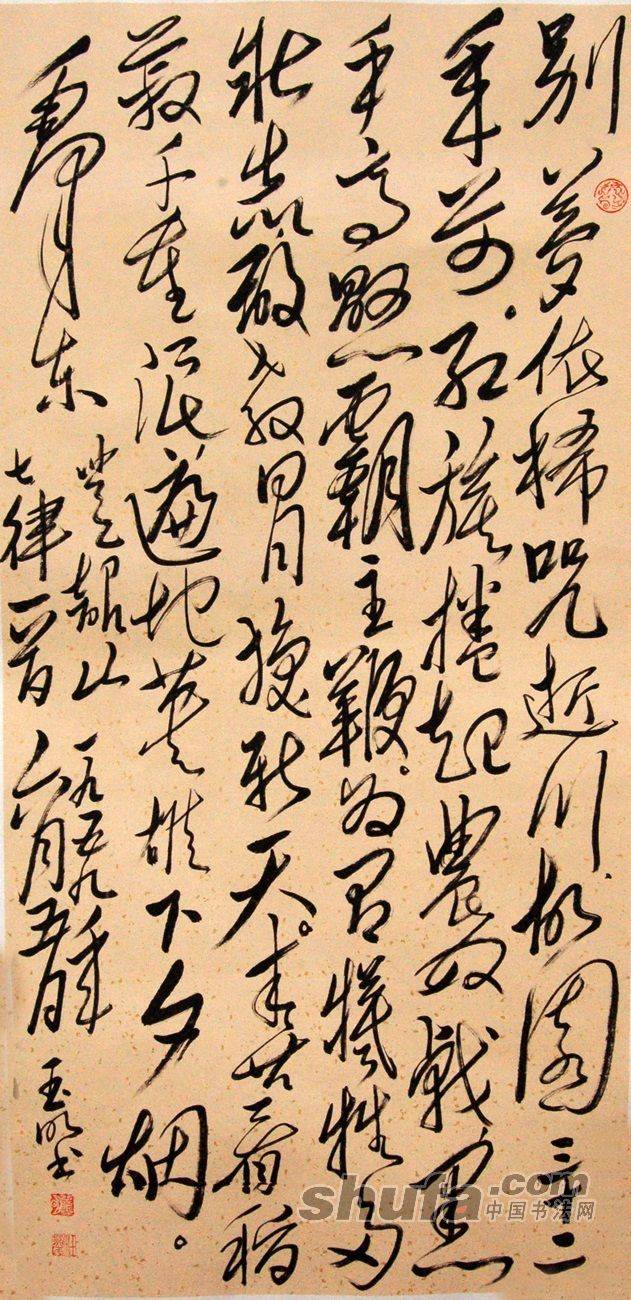 别夢依稀咒逝川故園三十二
年前红旗捲起農奴戟黑
手高懸霸主鞭为有犧牲多
壮志敢教日月換新天。喜看稻
菽千重浪遍地英雄下夕烟。
毛泽东
韶山 一九五九年
七律一首 六月五日
shufa.com
中国书法网